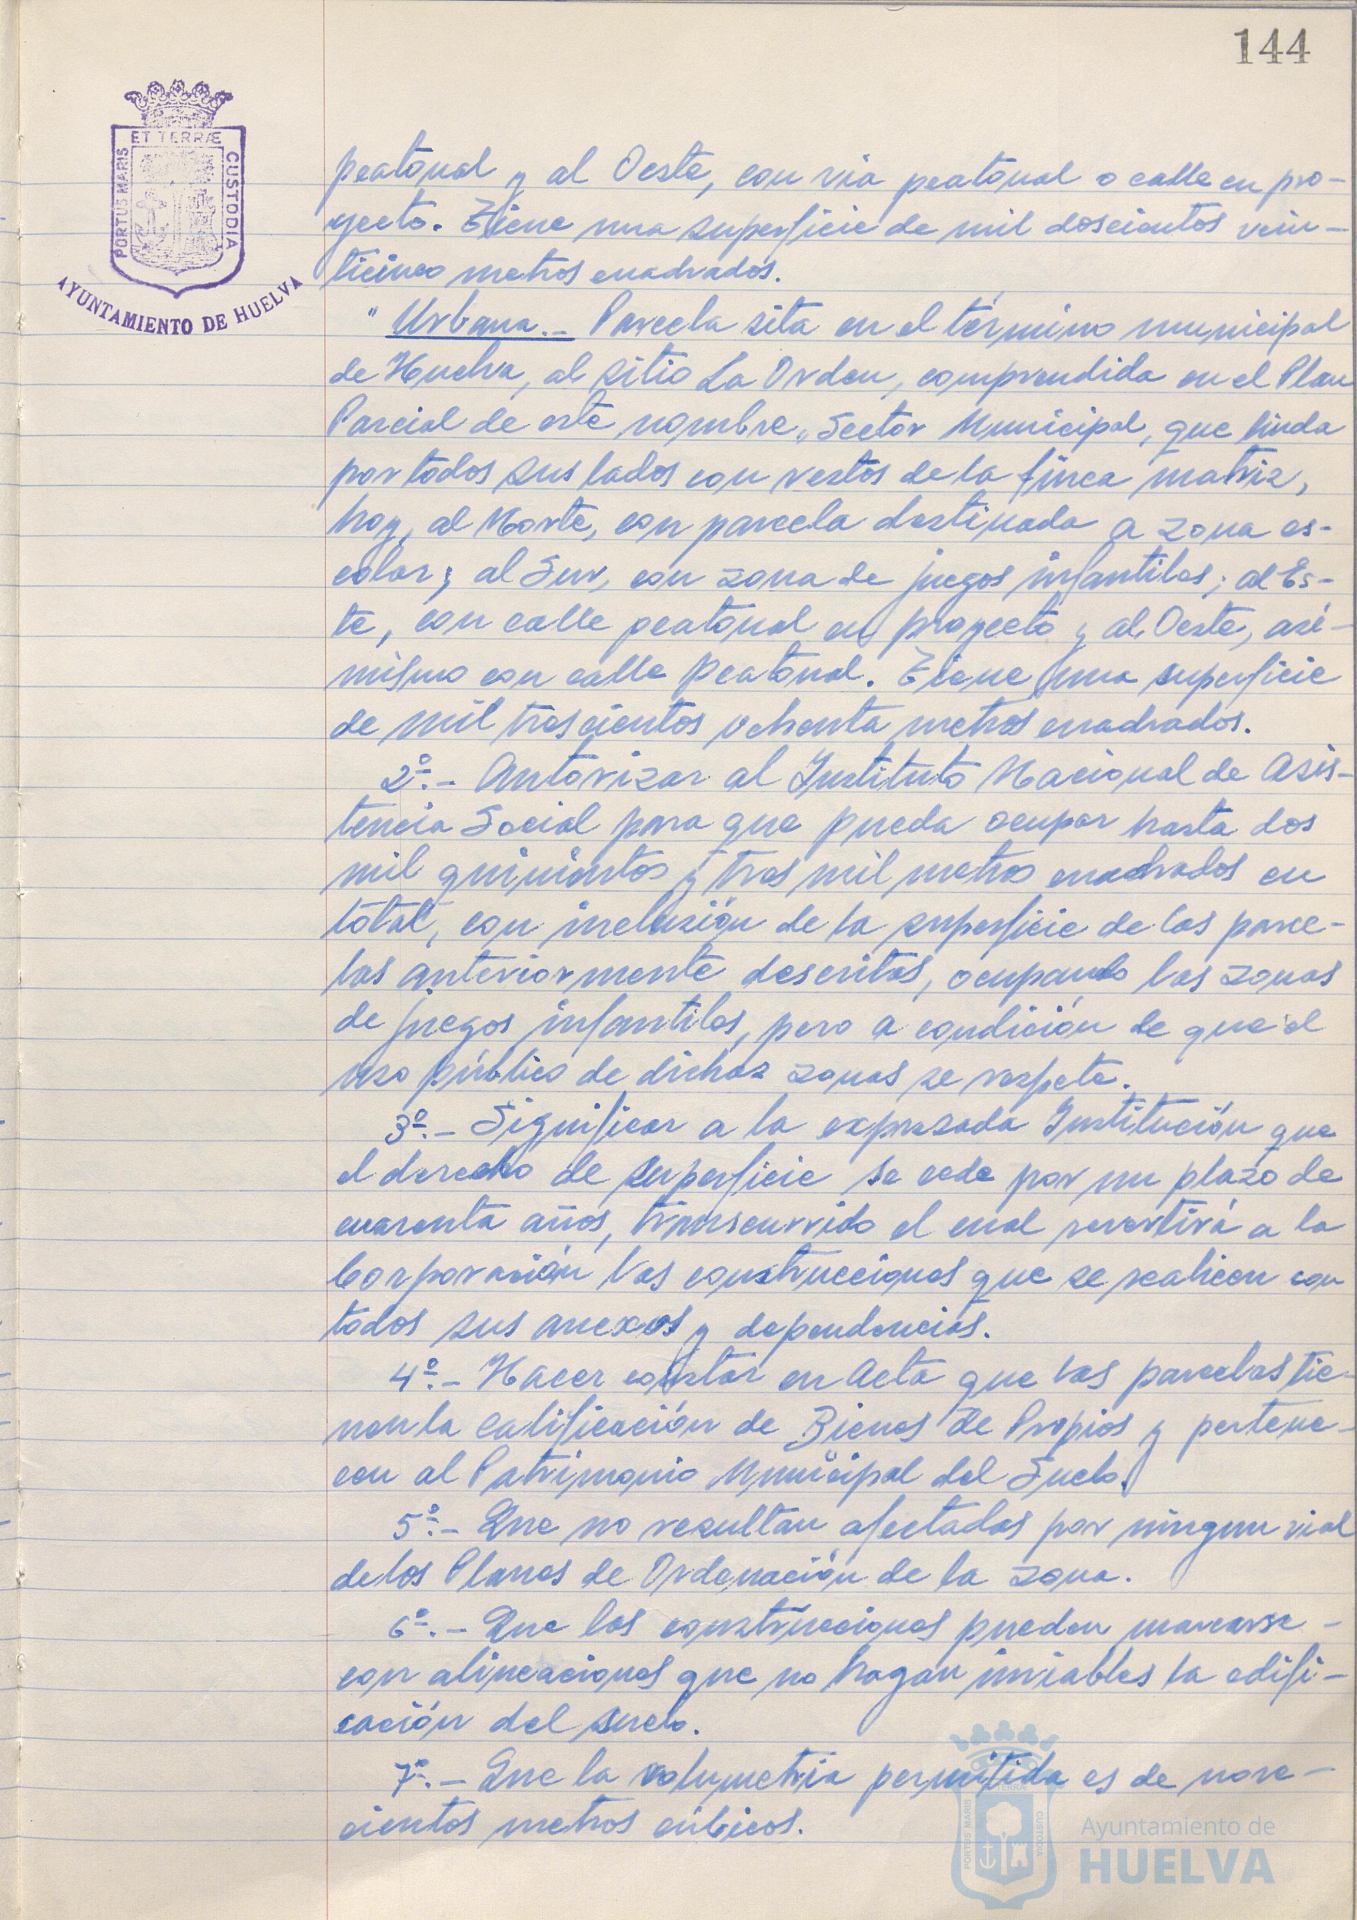 144
ET TERRÆ
PORTUS MARIS
CUSTODIA
AYUNTAMIENTO DE HUELVA
peatonal y al Oeste, con via peatonal o calle en pro-
yecto. Tiene una superficie de mil doscientos vein-
ticinco metros cuadrados.
" Urbana.- Parcela sita en el término municipal
de Huelva, al sitio La Orden, comprendida en el Plan
Parcial de este nombre, Sector Municipal, que linda
por todos sus lados con restos de la finca matriz,
hoy, al Norte, con parcela destinada a zona es-
colar; al Sur, con zona de juegos infantiles; al Es-
te, con calle peatonal en proyecto y al Oeste, asi-
mismo con calle peatonal. Tiene una superficie
de mil trescientos ochenta metros cuadrados.
2º.- Autorizar al Instituto Nacional de Asis-
tencia Social para que pueda ocupar hasta dos
mil quinientos y tres mil metros cuadrados en
total, con inclusión de la superficie de las parce-
las anteriormente descritas, ocupando las zonas
de juegos infantiles, pero a condición de que el
uso público de dichas zonas se respete.
3º.- Significar a la expresada Institución que
el derecho de superficie se cede por un plazo de
cuarenta años, transcurrido el cual revertirá a la
Corporación las construcciones que se realicen con
todos sus anexos y dependencias.
4º.- Hacer constar en Acta que las parcelas tie-
nen la calificación de Bienes de Propios y pertene-
cen al Patrimonio Municipal del Suelo.
5º.- Que no resultan afectadas por ningun vial
de los Planes de Ordenación de la zona.
6º.- Que las construcciones pueden marcarse -
con alineaciones que no hagan inviables la edifi-
cación del suelo.
7º.- Que la volumetria permitida es de nove-
cientos metros cúbicos.
PORTUS MARIS
CUSTODIA
Ayuntamiento de
HUELVA